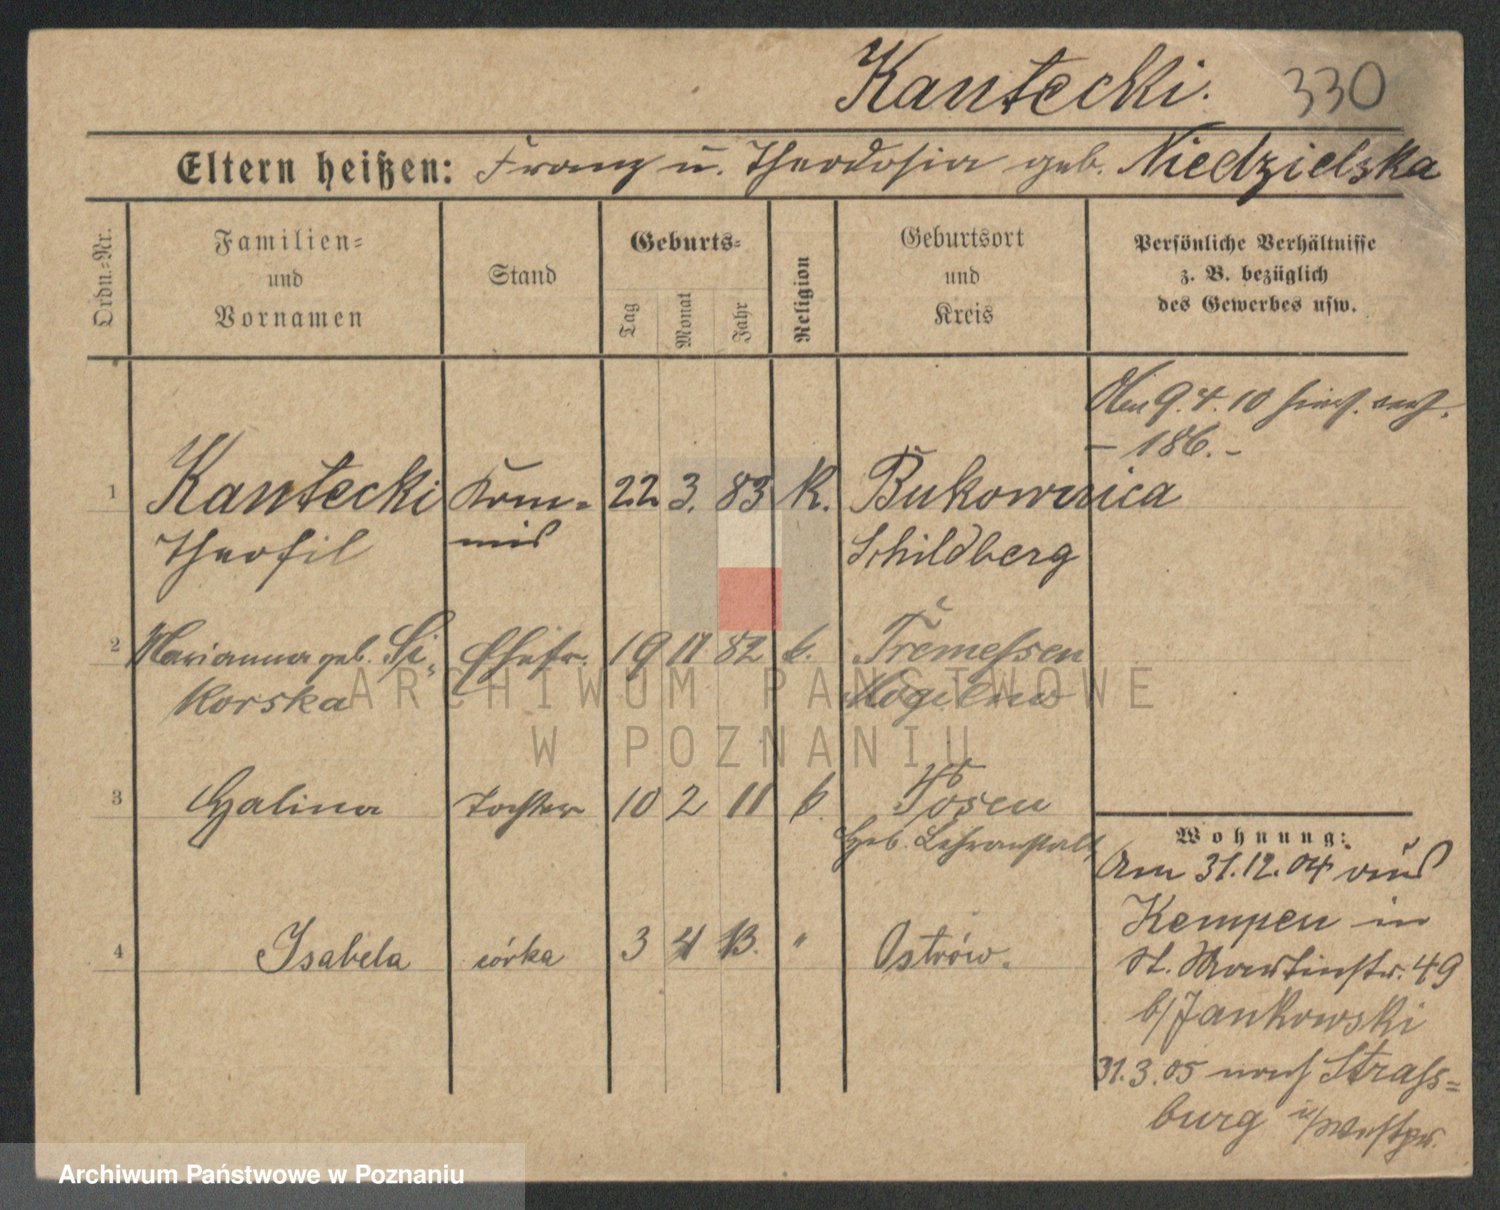 Kantecki. 330
Eltern heißen: Franz u. Theodosia geb. Niedzielska
Ordn.-Nr.
Familien-
und
Vornamen
Stand
Geburts-
Tag
Monat
Jahr
Religion
Geburtsort
und
Kreis
Persönliche Verhältnisse
z. B. bezüglich
des Gewerbes usw.
9.4.10
- 186. -
1 Kantecki Kom- 22 3. 83 K. Bukownica
Theofil mis Schildberg
2 Marianna geb. Si- Ehefr. 19 11 82 k. Tremessen
korska Mogilno
3 Halina Tochter 10 2 11 k. Posen
Heb. Lehranstalt
4 Isabela córka 3 4 13. " Ostrów.
Wohnung:
Am 31.12.04 aus
Kempen in
St. Martinstr. 49
b/Jankowski
31.3.05 nach Strass-
burg i/Westpr.
ARCHIWUM PAŃSTWOWE
W POZNANIU
Archiwum Państwowe w Poznaniu